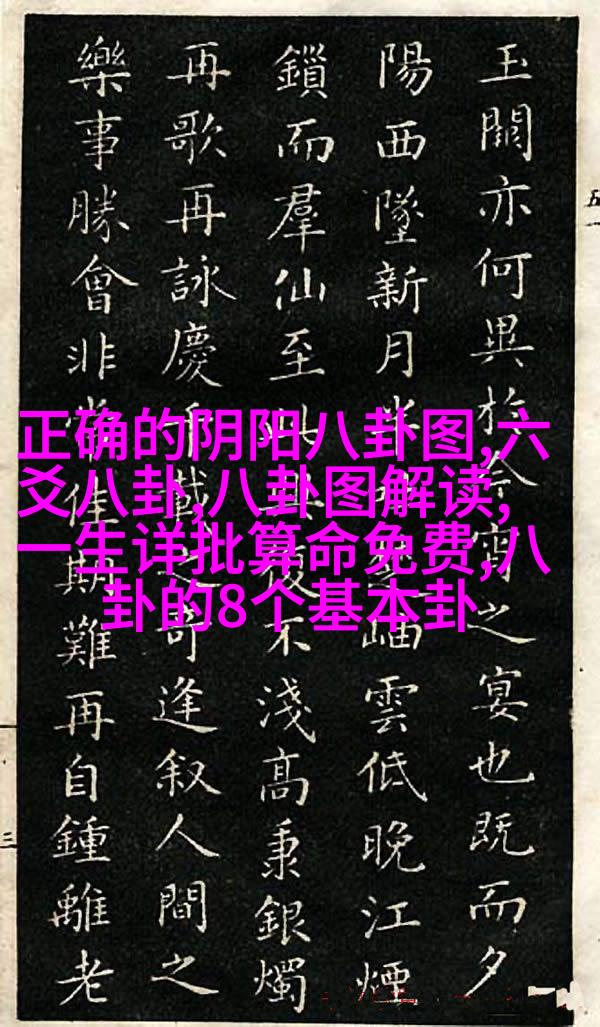 正确的阴阳八卦图,六
爻八卦,八卦图解读,
一生详批算命免费,八
卦的8个基本卦
玉闕亦何異於今宵之宴也既而夕
陽西墜新月半岫雲低晚江煙
鎖而羣仙至此復不淺高秉銀燭
再歌再詠慶千載之奇逢叙人間之
樂事勝會非常佳期難再自鍾離老
五一
三